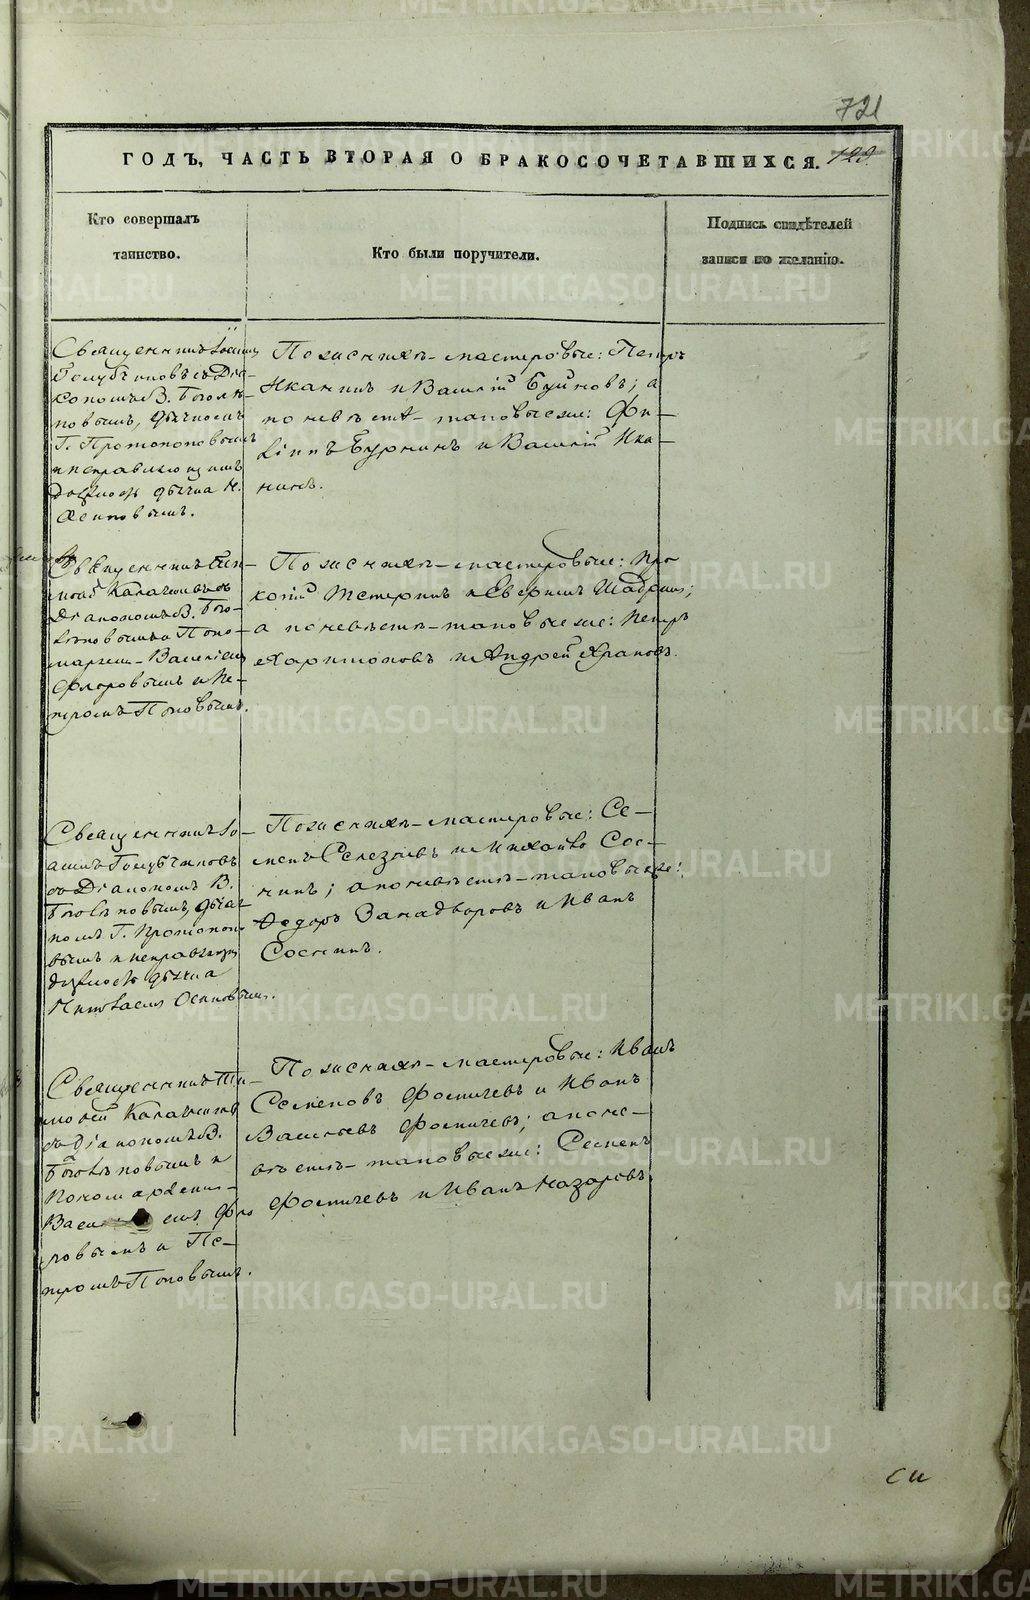 721
ГОДЪ, ЧАСТЬ ВТОРАЯ О БРАКОСОЧЕТАВШИХСЯ.
Кто совершалъ
таинство.
Кто были поручители.
Подпись свидѣтелей
записи по желанію.
Священникъ Іоаннъ
Голубчиковъ съ Діа-
кономъ В. Боголѣ-
повымъ, дьячкомъ
Г. Протопоповымъ
и исправляющимъ
должность дьячка Н.
Осиповымъ.
По женихѣ – мастеровые: Петръ
Иканинъ и Василій Буйновъ; а
по невѣстѣ – таковые же: Фи-
липпъ Буркинъ и Василій Ика-
нинъ.
Священникъ Тим-
ѳей Калашниковъ съ
Діакономъ В. Бого-
лѣповымъ и Поно-
марями – Василіемъ
Флоровымъ и Пе-
тромъ Поповымъ.
По женихѣ – мастеровые: Про
копій Тетеринъ и Шадринъ;
а по невѣстѣ – таковые же: Петръ
Харитоновъ и Андрей Храповъ.
Священникъ Іо-
аннъ Голубчиковъ
съ Діакономъ В.
Боголѣповымъ, дьяч-
комъ Г. Протопопо-
вымъ и исправляющ.
должность дьячка
Николаемъ Осиповымъ.
По женихѣ – мастеровые: Се-
менъ Селезневъ и Михайло Сос-
нинъ; а по невѣстѣ – таковые же:
Ѳедоръ Занадворовъ и Иванъ
Соснинъ.
Священникъ Ти-
моѳей Калашников
съ Діакономъ В.
Боголѣповымъ и
Пономарями –
Васи емъ Фло
ровымъ и Пе-
тромъ Поповымъ.
По женихѣ – мастеровые: Иванъ
Семеновъ Фомичевъ и Иванъ
Васильевъ Фомичевъ; а по не-
вѣстѣ – таковые же: Семенъ
Фомичевъ и Иванъ Назаровъ.
METRIKI.GASO-URAL.RU